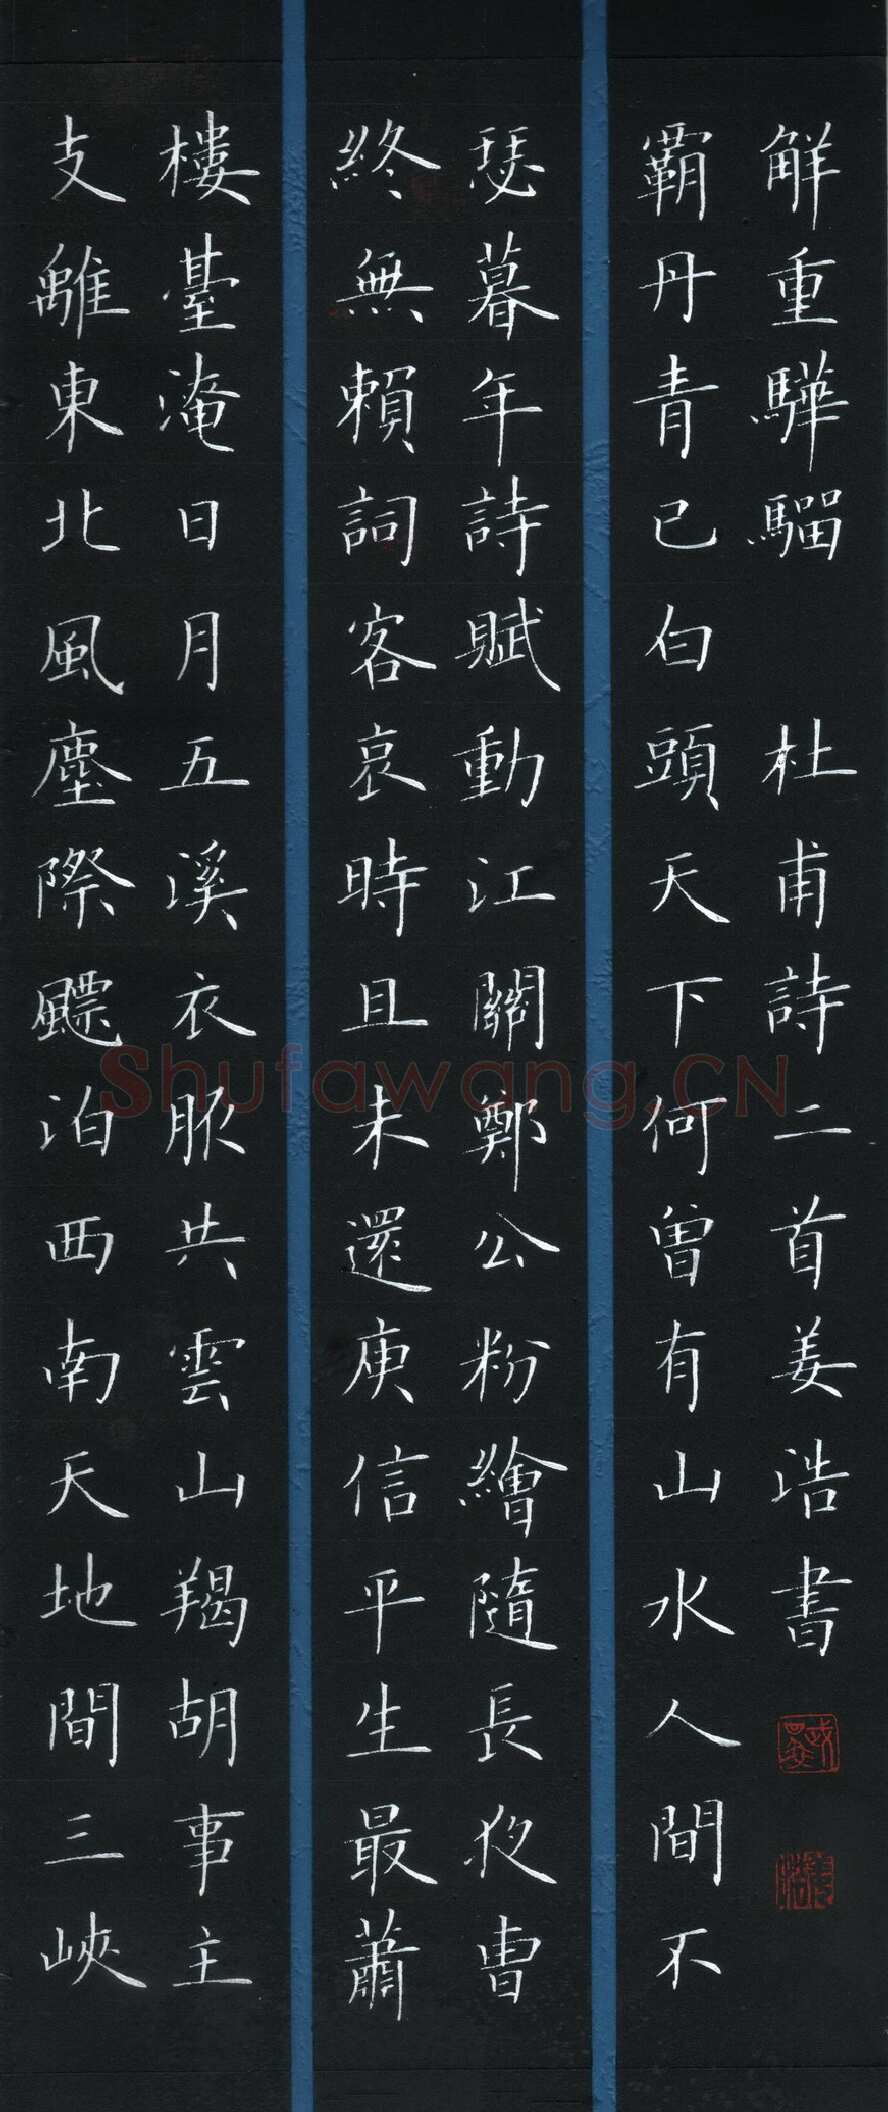 支離東北風塵際飄泊西南天地間三峽
樓臺淹日月五溪衣服共雲山羯胡事主
終無賴詞客哀時且未還庾信平生最蕭
瑟暮年詩賦動江關鄭公粉繪隨長夜曹
霸丹青已白頭天下何曾有山水人間不
解重驊騮 杜甫詩二首姜浩書
姜浩
Shufawang.CN